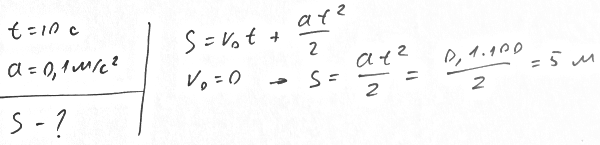 t = 10 с
a = 0,1 м/с²
S - ?
S = v₀t + at²/2
v₀ = 0 → S = at²/2 = 0,1·100/2 = 5 м